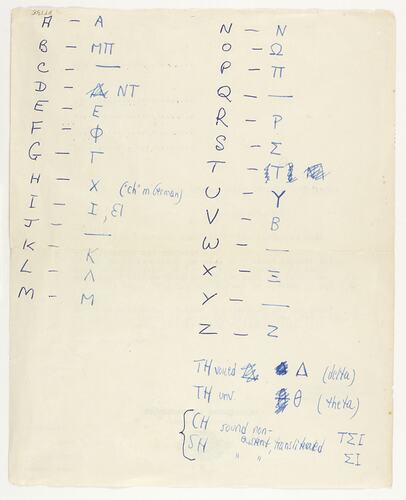 A — A
B — ΜΠ
C — —
D — NT
E — E
F — Φ
G — Γ
H — X ("ch" in German)
I — I, EI
J — —
K — K
L — Λ
M — M
N — N
O — Ω
P — Π
Q — —
R — P
S — Σ
T — T
U — Y
V — B
W — —
X — Ξ
Y — —
Z — Z
TH voiced Δ (delta)
TH unv. θ (theta)
CH sound non-
existent, transliterated ΤΣΙ
SH " " ΣΙ